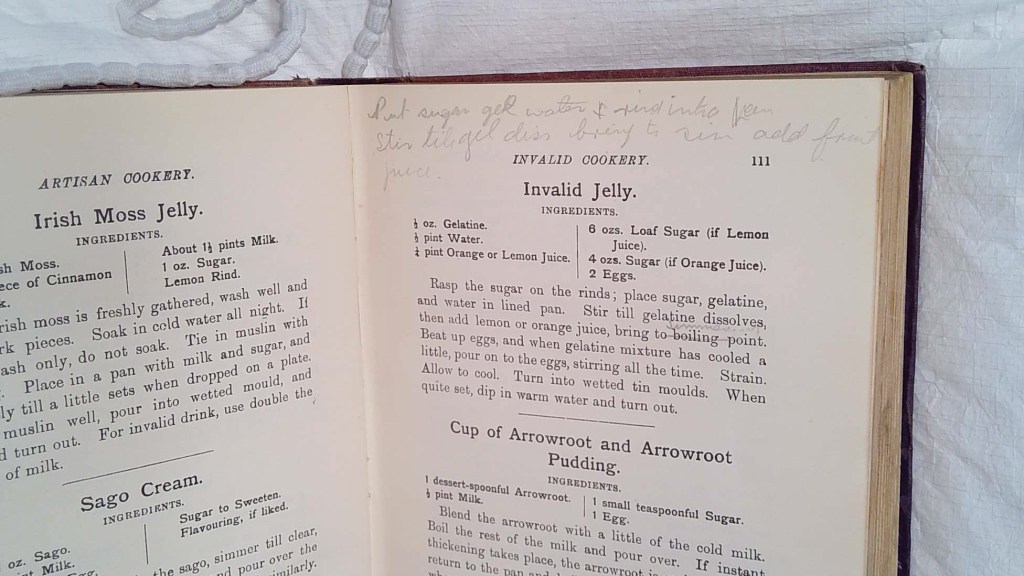 ARTISAN COOKERY.
Irish Moss Jelly.
INGREDIENTS.
sh Moss.
ece of Cinnamon
k.
About 1½ pints Milk.
1 oz. Sugar.
Lemon Rind.
rish moss is freshly gathered, wash well and
rk pieces. Soak in cold water all night. If
ash only, do not soak. Tie in muslin with
. Place in a pan with milk and sugar, and
ly till a little sets when dropped on a plate.
muslin well, pour into wetted mould, and
d turn out. For invalid drink, use double the
of milk.
Sago Cream.
INGREDIENTS.
oz. Sago.
t Milk.
Sugar to Sweeten.
Flavouring, if liked.
the sago, simmer till clear,
d pour over the
similarly.
Put sugar gel water & rind into pan
Stir till gel diss bring to sim add fruit
juice.
INVALID COOKERY. 111
Invalid Jelly.
INGREDIENTS.
½ oz. Gelatine.
½ pint Water.
¼ pint Orange or Lemon Juice.
6 ozs. Loaf Sugar (if Lemon
Juice).
4 ozs. Sugar (if Orange Juice).
2 Eggs.
Rasp the sugar on the rinds; place sugar, gelatine,
and water in lined pan. Stir till gelatine dissolves,
then add lemon or orange juice, bring to boiling point.
Beat up eggs, and when gelatine mixture has cooled a
little, pour on to the eggs, stirring all the time. Strain.
Allow to cool. Turn into wetted tin moulds. When
quite set, dip in warm water and turn out.
Cup of Arrowroot and Arrowroot
Pudding.
INGREDIENTS.
1 dessert-spoonful Arrowroot.
½ pint Milk.
1 small teaspoonful Sugar.
1 Egg.
Blend the arrowroot with a little of the cold milk.
Boil the rest of the milk and pour over. If instant
thickening takes place, the arrowroot is
return to the pan and